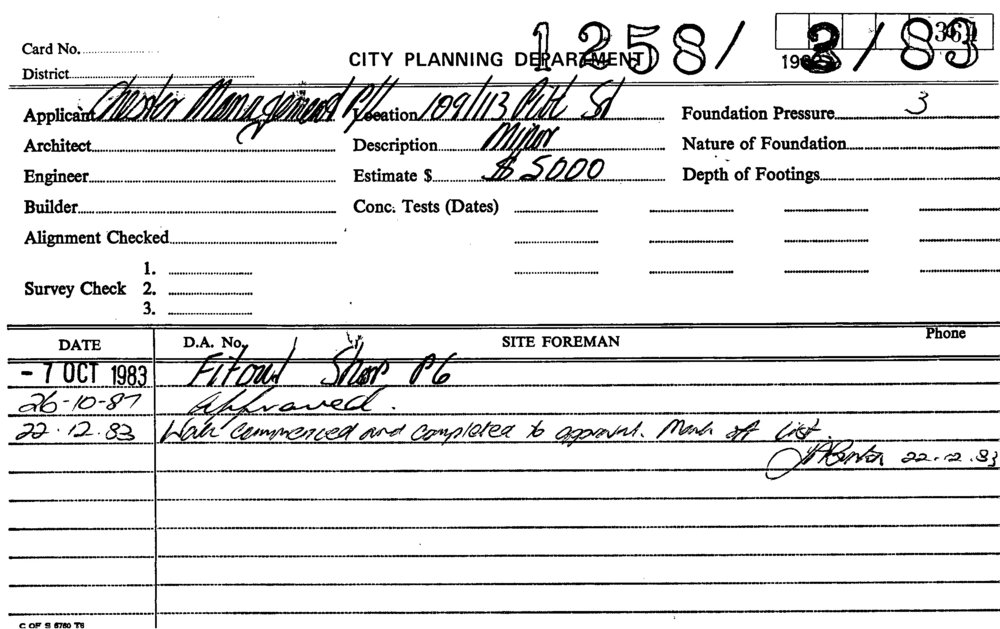 Card No. 1258/3/83 361
CITY PLANNING DEPARTMENT 198
District
Applicant Chester Management P/L Location 109/113 Pitt St Foundation Pressure 3
Architect Description Minor Nature of Foundation
Engineer Estimate $ $5000 Depth of Footings
Builder Conc. Tests (Dates)
Alignment Checked
1.
Survey Check 2.
3.
DATE D.A. No. SITE FOREMAN Phone
- 7 OCT 1983 Fitout Shop P6
26-10-87 Approved.
22.12.83 Work commenced and completed to approval. Mark off list.
22.12.83
C OF S 6760 T6